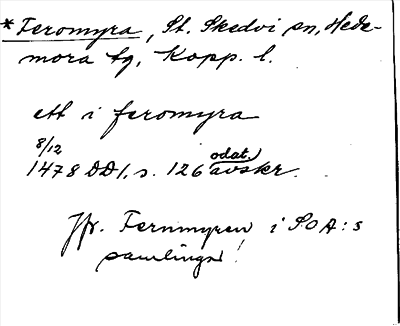 *Feromyra, St. Skedvi sn, Hede-
mora tg, Kopp. l.
ett i feromyra
8/12
1478 DD1, s. 126 odat. avskr.
Jfr. Fernmyren i SOA:s
samlingar!